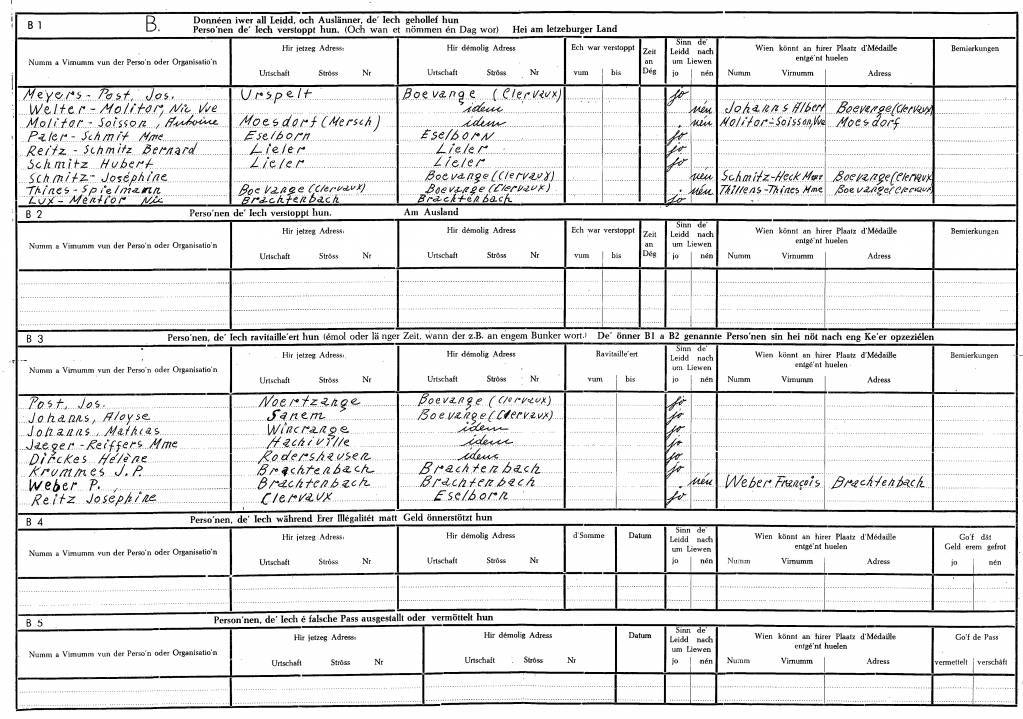 B 1 B. Donnéen iwer all Leidd, och Auslänner, de' Iech gehollef hun
Perso'nen de' Iech verstoppt hun. (Och wan et nömmen én Dag wor) Hei am letzeburger Land
Numm a Virnumm vun der Perso'n oder Organisatio'n Hir jetzeg Adress: Urtschaft Ströss Nr Hir démolig Adress Urtschaft Ströss Nr Ech war verstoppt vum bis Zeit an Dég Sinn de' Leidd nach um Liewen jo nén Wien könnt an hirer Plaatz d'Médaille entgé'nt huelen Numm Virnumm Adress Bemierkungen
Meyers - Post, Jos. Urspelt Boevange (Clervaux) jo
Welter - Molitor, Nic Vve idem nén Johanns Albert Boevange (Clervaux)
Molitor - Soisson, Antoine Moesdorf (Mersch) idem nén Molitor - Soisson, Vve Moesdorf
Paler - Schmit Mme Eselborn Eselborn jo
Reitz - Schmitz Bernard Lieler Lieler jo
Schmitz Hubert Lieler Lieler jo
Schmitz - Joséphine Boevange (Clervaux) nén Schmitz-Heck Mme Boevange (Clervaux)
Thines - Spielmann Boevange (Clervaux) Boevange (Clervaux) nén Thillens-Thines Mme Boevange (Clervaux)
Lux - Mentior Nic Brachtenbach Brachtenbach jo
B 2 Perso'nen de' Iech verstoppt hun. Am Ausland
Numm a Virnumm vun der Perso'n oder Organisatio'n Hir jetzeg Adress: Urtschaft Ströss Nr Hir démolig Adress Urtschaft Ströss Nr Ech war verstoppt vum bis Zeit an Dég Sinn de' Leidd nach um Liewen jo nén Wien könnt an hirer Plaatz d'Médaille entgé'nt huelen Numm Virnumm Adress Bemierkungen
B 3 Perso'nen, de' Iech ravitaille'ert hun (émol oder länger Zeit, wann der z.B. an engem Bunker wort.) De' önner B1 a B2 genannte Perso'nen sin hei nöt nach eng Ke'er opzeziélen
Numm a Virnumm vun der Perso'n oder Organisatio'n Hir jetzeg Adress: Urtschaft Ströss Nr Hir démolig Adress Urtschaft Ströss Nr Ravitaille'ert vum bis Sinn de' Leidd nach um Liewen jo nén Wien könnt an hirer Plaatz d'Médaille entgé'nt huelen Numm Virnumm Adress Bemierkungen
Post, Jos. Noertzange Boevange (Clervaux) jo
Johanns, Aloyse Sanem Boevange (Clervaux) jo
Johanns, Mathias Wincrange idem jo
Jaeger - Reiffers Mme Hachiville idem jo
Dirckes Hélène Rodershausen idem jo
Krummes J.P. Brachtenbach Brachtenbach jo
Weber P. Brachtenbach Brachtenbach nén Weber François Brachtenbach
Reitz Joséphine Clervaux Eselborn jo
B 4 Perso'nen, de' Iech während Erer Illégalitét matt Geld önnerstötzt hun
Numm a Virnumm vun der Perso'n oder Organisatio'n Hir jetzeg Adress: Urtschaft Ströss Nr Hir démolig Adress Urtschaft Ströss Nr d'Somme Datum Sinn de' Leidd nach um Liewen jo nén Wien könnt an hirer Plaatz d'Médaille entgé'nt huelen Numm Virnumm Adress Go'f dát Geld erem gefrot jo nén
B 5 Person'nen, de' Iech é falsche Pass ausgestallt oder vermöttelt hun
Numm a Virnumm vun der Perso'n oder Organisatio'n Hir jetzeg Adress: Urtschaft Ströss Nr Hir démolig Adress Urtschaft Ströss Nr Datum Sinn de' Leidd nach um Liewen jo nén Wien könnt an hirer Plaatz d'Médaille entgé'nt huelen Numm Virnumm Adress Go'f de Pass vermettelt verschâft